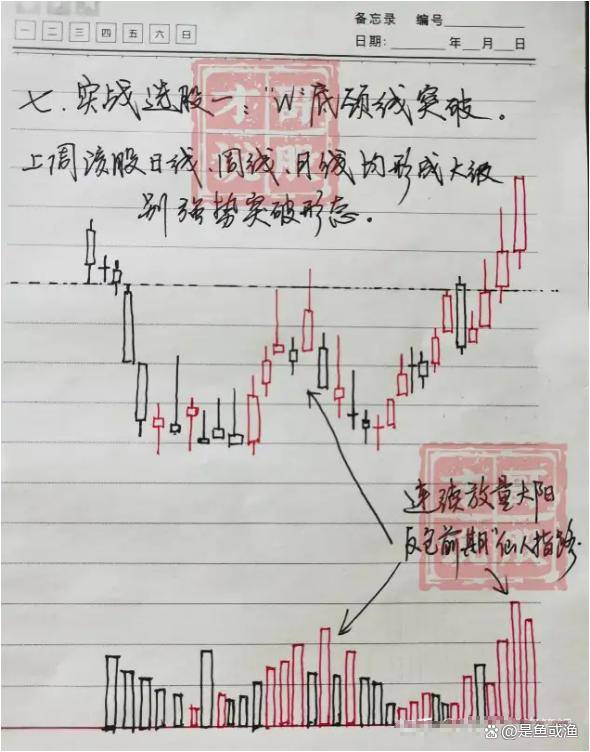 备忘录 编号
一 二 三 四 五 六 日
日期: 年 月 日
七.实战选股一:"W"底颈线突破。
上周该股日线、周线、月线均形成大级
别强势突破形态。
连续放量大阳
反包前期"仙人指路.
@是鱼或渔